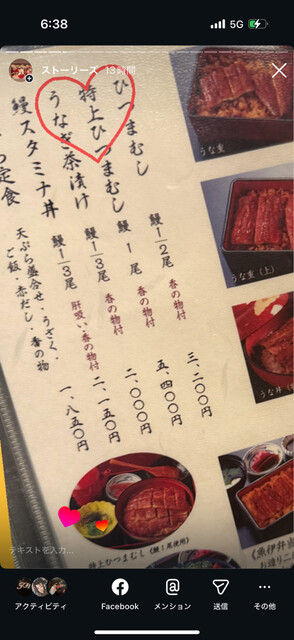 6:38
5G
ストーリーズ 13時間
ひつまむし 鰻1/2尾 香の物付 三、二〇〇円
特上ひつまむし 鰻1尾 香の物付 五、四〇〇円
うなぎ茶漬け 鰻1/3尾 香の物付 二、〇〇〇円
鰻スタミナ丼 鰻1/3尾 肝吸い・香の物付 二、一五〇円
定食 天ぷら盛合せ・うざく・ 一、八五〇円
ご飯・赤だし・香の物
うな重
うな重(上)
うな丼
特上ひつまむし(鰻1尾使用)
テキストを入力...
アクティビティ
Facebook
メンション
送信
その他